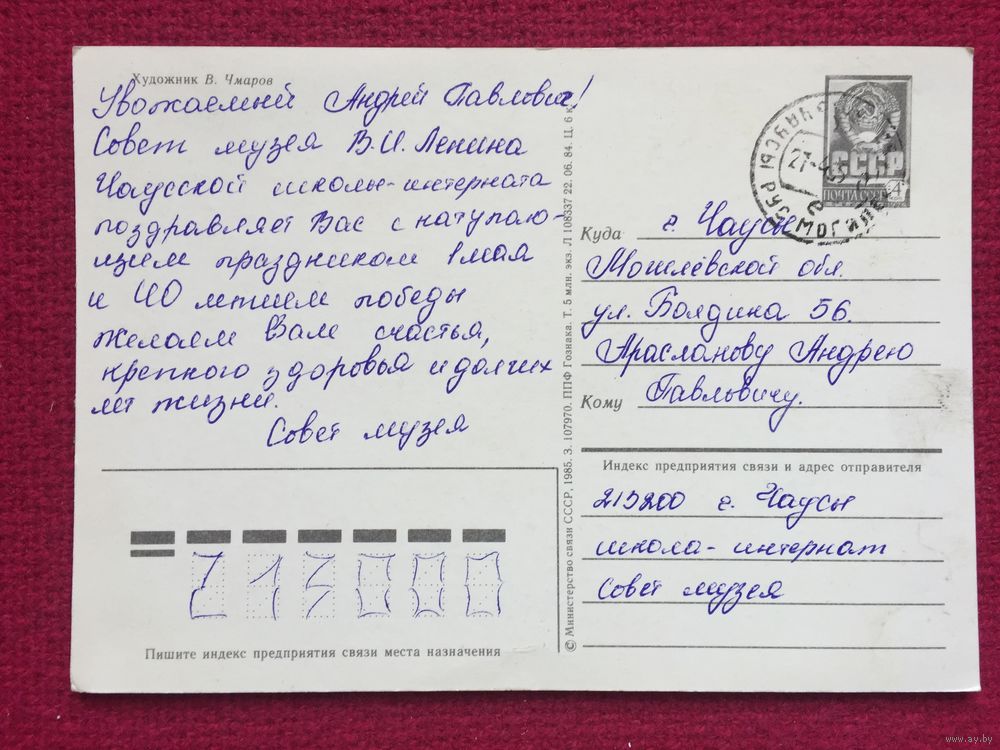 Художник В. Чмаров
Уважаемый Андрей Павлович!
Совет музея В.И. Ленина
Чаусской школы-интерната
поздравляет Вас с наступаю-
щим праздником 1 мая
и 40 летием победы
желаем Вам счастья,
крепкого здоровья и долгих
лет жизни.
Совет музея
Пишите индекс предприятия связи места назначения
© Министерство связи СССР, 1985. З. 107970. ППФ Гознака. Т. 5 млн. экз. Л 108337 22. 06. 84. Ц. 6 к.
СССР
ПОЧТА СССР 4
ЧАУСЫ
21-4
Куда г. Чаусы
Могилёвской обл.
ул. Болдина 56.
Арасланову Андрею
Кому Павловичу.
Индекс предприятия связи и адрес отправителя
213200 г. Чаусы
школа-интернат
Совет музея
www.ay.by